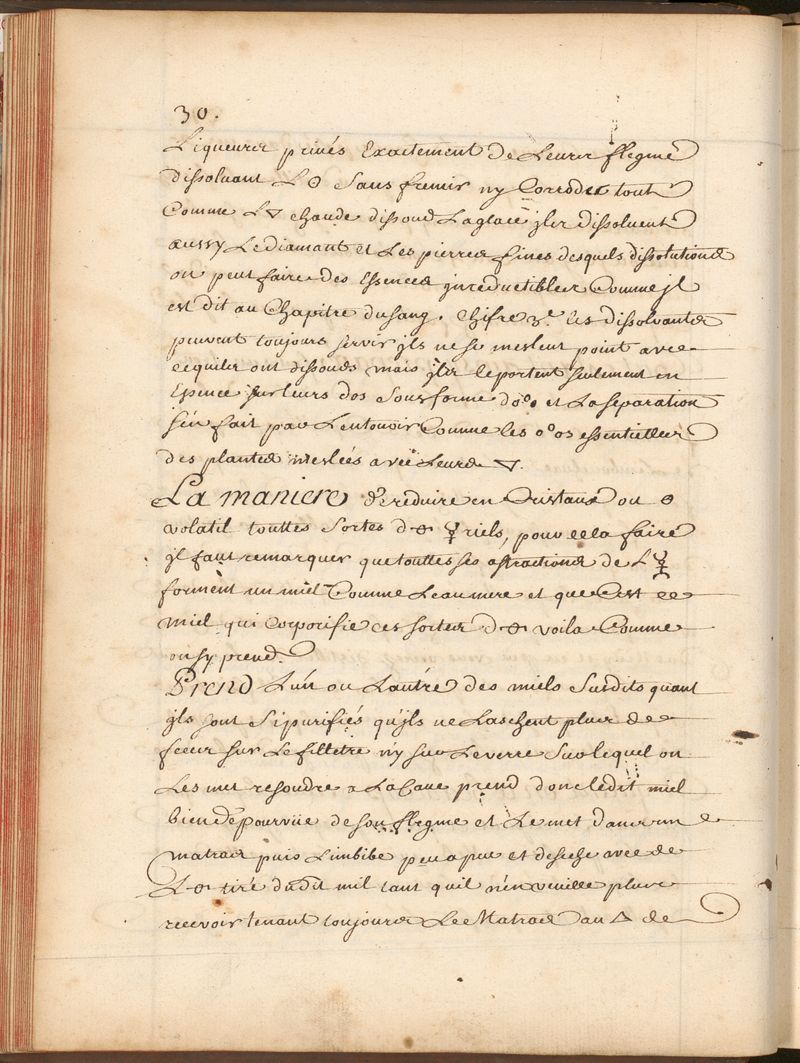 30.
Liqueurs privés Exactement de Leurs flegme
dissoluant L☉ Sans fremir ny Coroder tout
Comme L🜄 chaude dissoud La glace jls dissoluent
aussy Le diamant et Les pierres fines desquels dissolutions
on peut faire des Essences jrreductibles Comme jl
est dit au Chapitre du sang. Chifre 3e. les dissoluants
peuvent toujours servir jls ne se meslent point avec
cequils ont dissouds mais jls le portent seulement en
Essence sur leurs dos Sous forme d et La separation
s'en fait par L'entonoir Comme les essentielles
des plantes meslées avec Leurs 🜄.
La maniere de reduire en Cristaux ou
volatil touttes Sortes d riels, pour cela faire
jl faut remarquer que touttes ses astractions de L
forment un miel Comme Leaumere et que C'est ce
miel qui Corporifie ces sortes d voila Comme
on sy prend.
Prend L'un ou L'autre des miels Susdits quant
jls sont Si purifiés qu'jls ne Laschent plus de
feces sur Le filtre n'y sur Le verre Sur lequel on
Les met resoudre a La Cave prend donc ledit miel
bien dépourvüe de son flegme et Le met dans un
matras puis L'imbibe peu a peu et deseche avec de
L tiré dudit mil tant quil n'en veuille plus
recevoir tenant toujours Le Matras au 🜂 de